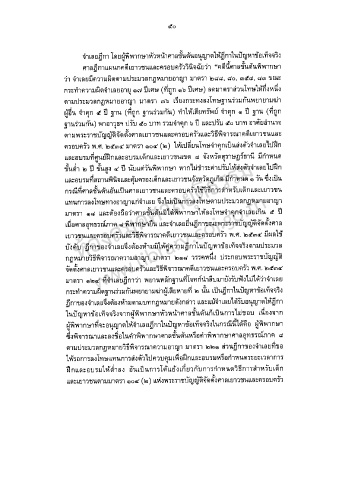 ๕๐
จำเลยฎีกา โดยผู้พิพากษาหัวหน้าศาลชั้นต้นอนุญาตให้ฎีกาในปัญหาข้อเท็จจริง
ศาลฎีกาแผนกคดีเยาวชนและครอบครัววินิจฉัยว่า "คดีนี้ศาลชั้นต้นพิพากษา
ว่า จำเลยมีความผิดตามประมวลกฎหมายอาญา มาตรา ๒๘๘, ๘๐, ๓๕๘, ๘๓ ขณะ
กระทำความผิดจำเลยอายุ ๑๗ ปีเศษ (ที่ถูก ๑๖ ปีเศษ) ลดมาตราส่วนโทษให้กึ่งหนึ่ง
ตามประมวลกฎหมายอาญา มาตรา ๗๖ เรียงกระทงลงโทษฐานร่วมกันพยายามฆ่า
ผู้อื่น จำคุก ๕ ปี ฐาน (ที่ถูก ฐานร่วมกัน) ทำให้เสียทรัพย์ จำคุก ๑ ปี ฐาน (ที่ถูก
ฐานร่วมกัน) พาอาวุธฯ ปรับ ๕๐ บาท รวมจำคุก ๖ ปี และปรับ ๕๐ บาท อาศัยอำนาจ
ตามพระราชบัญญัติจัดตั้งศาลเยาวชนและครอบครัวและวิธีพิจารณาคดีเยาวชนและ
ครอบครัว พ.ศ. ๒๕๓๔ มาตรา ๑๐๔ (๒) ให้เปลี่ยนโทษจำคุกเป็นส่งตัวจำเลยไปฝึก
และอบรมที่ศูนย์ฝึกและอบรมเด็กและเยาวชนเขต ๘ จังหวัดสุราษฎร์ธานี มีกำหนด
ขั้นต่ำ ๒ ปี ขั้นสูง ๔ ปี นับแต่วันพิพากษา หากไม่ชำระค่าปรับให้ส่งตัวจำเลยไปฝึก
และอบรมที่สถานพินิจและคุ้มครองเด็กและเยาวชนจังหวัดภูเก็ต มีกำหนด ๑ วัน ซึ่งเป็น
กรณีที่ศาลชั้นต้นอันเป็นศาลเยาวชนและครอบครัวใช้วิธีการสำหรับเด็กและเยาวชน
แทนการลงโทษทางอาญาแก่จำเลย จึงไม่เป็นการลงโทษตามประมวลกฎหมายอาญา
มาตรา ๑๘ และต้องถือว่าศาลชั้นต้นมิได้พิพากษาให้ลงโทษจำคุกจำเลยเกิน ๕ ปี
เมื่อศาลอุทธรณ์ภาค ๘ พิพากษายืน และจำเลยยื่นฎีกาขณะพระราชบัญญัติจัดตั้งศาล
เยาวชนและครอบครัวและวิธีพิจารณาคดีเยาวชนและครอบครัว พ.ศ. ๒๕๓๔ มีผลใช้
บังคับ ฎีกาของจำเลยจึงต้องห้ามมิให้คู่ความฎีกาในปัญหาข้อเท็จจริงตามประมวล
กฎหมายวิธีพิจารณาความอาญา มาตรา ๒๑๘ วรรคหนึ่ง ประกอบพระราชบัญญัติ
จัดตั้งศาลเยาวชนและครอบครัวและวิธีพิจารณาคดีเยาวชนและครอบครัว พ.ศ. ๒๕๓๔
มาตรา ๑๒๔ ที่จำเลยฎีกาว่า พยานหลักฐานที่โจทก์นำสืบมายังรับฟังไม่ได้ว่าจำเลย
กระทำความผิดฐานร่วมกันพยายามฆ่าผู้เสียหายที่ ๒ นั้น เป็นฎีกาในปัญหาข้อเท็จจริง
ฎีกาของจำเลยจึงต้องห้ามตามบทกฎหมายดังกล่าว และแม้จำเลยได้รับอนุญาตให้ฎีกา
ในปัญหาข้อเท็จจริงจากผู้พิพากษาหัวหน้าศาลชั้นต้นก็เป็นการไม่ชอบ เนื่องจาก
ผู้พิพากษาที่จะอนุญาตให้จำเลยฎีกาในปัญหาข้อเท็จจริงในกรณีนี้ได้คือ ผู้พิพากษา
ซึ่งพิจารณาและลงชื่อในคำพิพากษาศาลชั้นต้นหรือคำพิพากษาศาลอุทธรณ์ภาค ๘
ตามประมวลกฎหมายวิธีพิจารณาความอาญา มาตรา ๒๒๑ ส่วนฎีกาของจำเลยที่ขอ
ให้รอการลงโทษแทนการส่งตัวไปควบคุมเพื่อฝึกและอบรมหรือกำหนดระยะเวลาการ
ฝึกและอบรมให้ต่ำลง อันเป็นการโต้แย้งเกี่ยวกับการกำหนดวิธีการสำหรับเด็ก
และเยาวชนตามมาตรา ๑๐๔ (๒) แห่งพระราชบัญญัติจัดตั้งศาลเยาวชนและครอบครัว